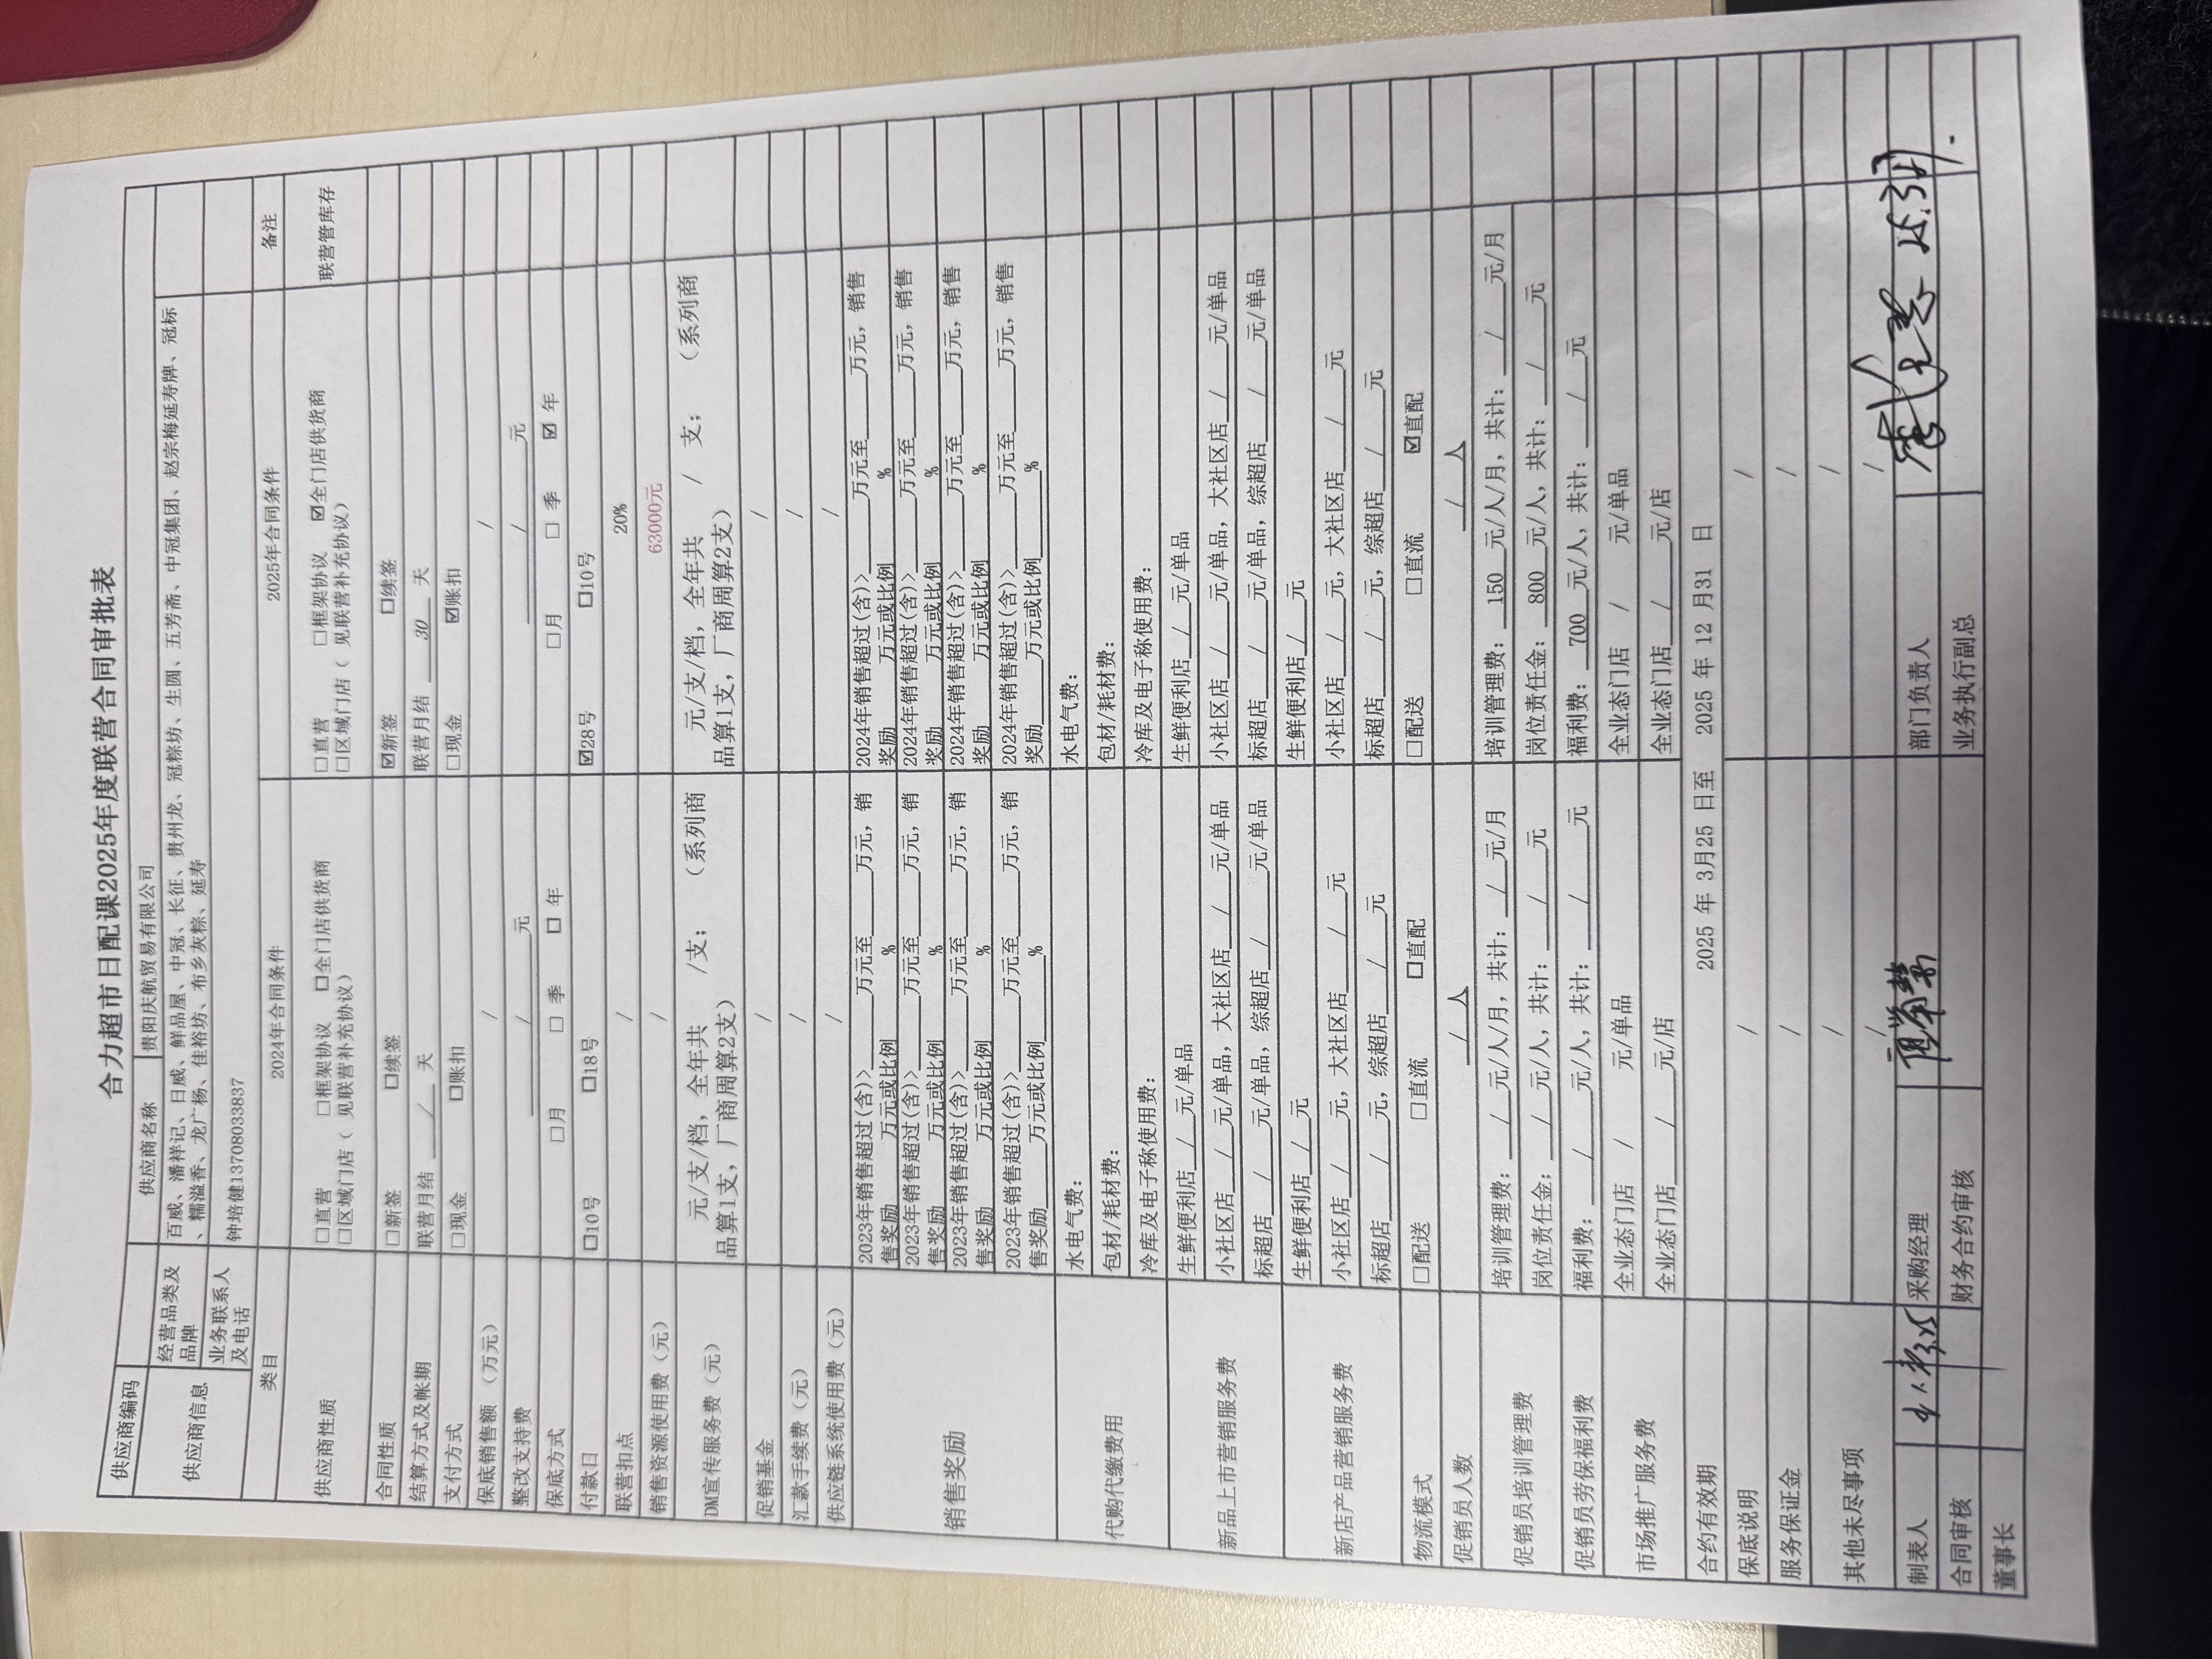 合力超市日配课2025年度联营合同审批表
供应商编码 供应商名称 贵阳庆航贸易有限公司
供应商信息 经营品类及品牌 百威、潘祥记、日威、鲜品屋、中冠、长征、贵州龙、冠粽坊、生圆、五芳斋、中冠集团、赵宗梅延寿牌、冠标
、糯溢香、龙广杨、佳裕坊、布乡灰粽、延寿
业务联系人及电话 钟培健13708033837
类目 2024年合同条件 2025年合同条件 备注
供应商性质 □直营 □框架协议 □全门店供货商 □直营 □框架协议 ☑全门店供货商 联营管库存
□区域门店（ 见联营补充协议） □区域门店（ 见联营补充协议）
合同性质 □新签 □续签 ☑新签 □续签
结算方式及帐期 联营月结 / 天 联营月结 30 天
支付方式 □现金 □账扣 □现金 ☑账扣
保底销售额（万元） / /
整改支持费 / 元 / 元
保底方式 □月 □ 季 □ 年 □月 □ 季 ☑ 年
付款日 □10号 □18号 ☑28号 □10号
联营扣点 / 20%
销售资源使用费（元） / 63000元
DM宣传服务费（元） 元/支/档，全年共 /支； （系列商 元/支/档，全年共 / 支； （系列商
品算1支，厂商周算2支） 品算1支，厂商周算2支）
促销基金 / /
汇款手续费（元） / /
供应链系统使用费（元） / /
销售奖励 2023年销售超过(含)>____万元至____万元，销 2024年销售超过(含)>____万元至____万元，销售
售奖励____万元或比例____% 奖励____万元或比例____%
2023年销售超过(含)>____万元至____万元，销 2024年销售超过(含)>____万元至____万元，销售
售奖励____万元或比例____% 奖励____万元或比例____%
2023年销售超过(含)>____万元至____万元，销 2024年销售超过(含)>____万元至____万元，销售
售奖励____万元或比例____% 奖励____万元或比例____%
2023年销售超过(含)>____万元至____万元，销 2024年销售超过(含)>____万元至____万元，销售
售奖励____万元或比例____% 奖励____万元或比例____%
代购代缴费用 水电气费： 水电气费：
包材/耗材费： 包材/耗材费：
冷库及电子称使用费： 冷库及电子称使用费：
新品上市营销服务费 生鲜便利店__/__元/单品 生鲜便利店__/__元/单品
小社区店__/__元/单品，大社区店__/__元/单品 小社区店__/__元/单品，大社区店__/__元/单品
标超店__/__元/单品，综超店__/__元/单品 标超店__/__元/单品，综超店__/__元/单品
新店产品营销服务费 生鲜便利店__/__元 生鲜便利店__/__元
小社区店__/__元，大社区店__/__元 小社区店__/__元，大社区店__/__元
标超店__/__元，综超店__/__元 标超店__/__元，综超店__/__元
物流模式 □配送 □直流 □直配 □配送 □直流 ☑直配
促销员人数 __/__人 __/__人
促销员培训管理费 培训管理费：__/__元/人/月，共计：__/__元/月 培训管理费： 150 元/人/月，共计：__/__元/月
岗位责任金：__/__元/人，共计：__/__元 岗位责任金： 800 元/人，共计：__/__元
促销员劳保福利费 福利费：__/__元/人，共计：__/__元 福利费： 700 元/人，共计：__/__元
市场推广服务费 全业态门店 / 元/单品 全业态门店 / 元/单品
全业态门店__/__元/店 全业态门店__/__元/店
合约有效期 2025 年 3月25 日至 2025 年 12 月31 日
保底说明 / /
服务保证金 / /
其他未尽事项 / /
/ /
制表人 采购经理 部门负责人
合同审核 财务合约审核 业务执行副总
董事长